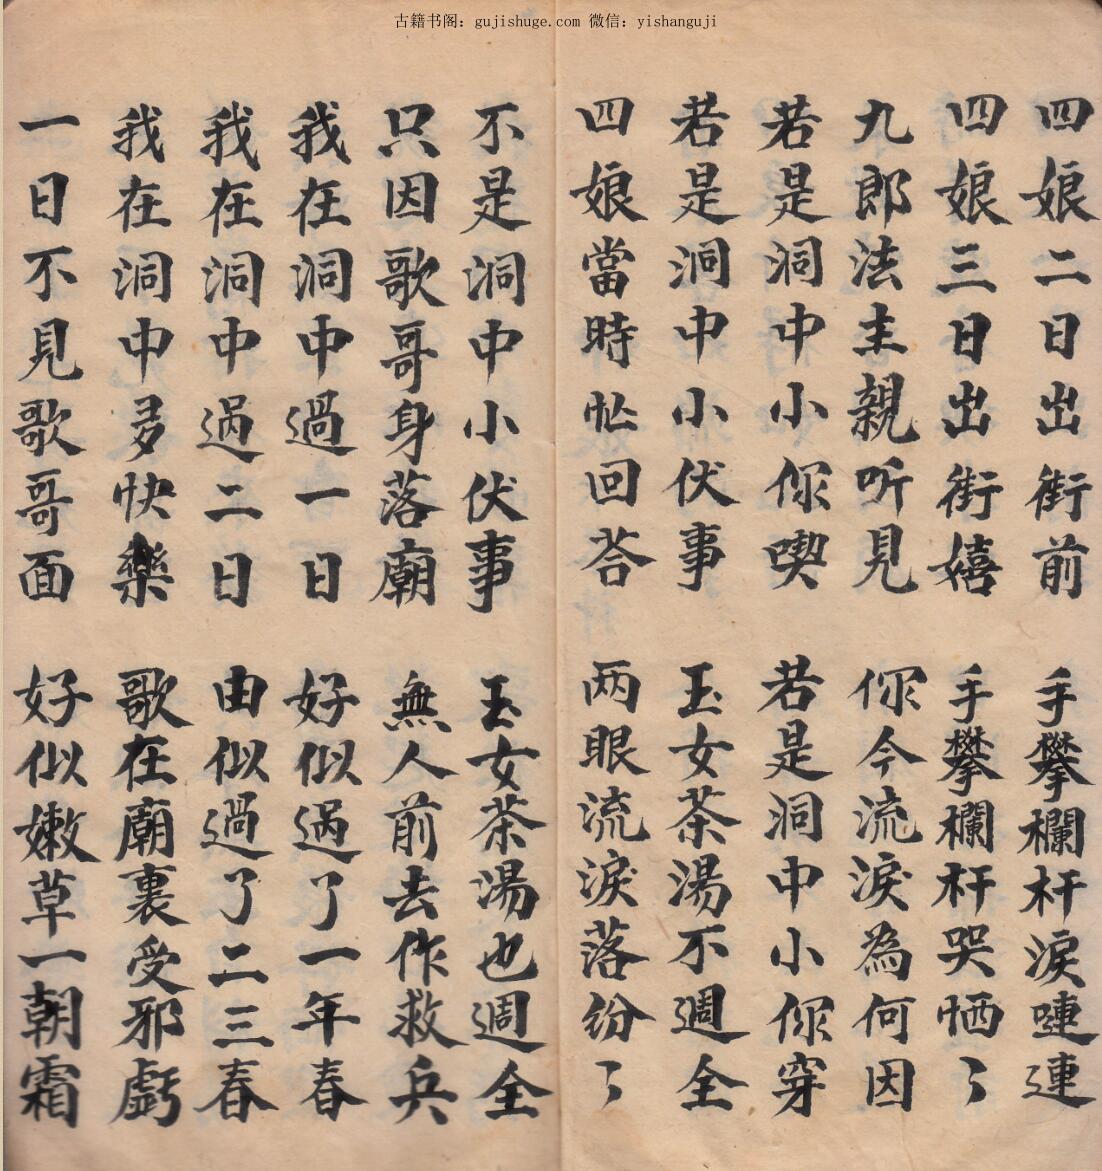 古籍书阁：gujishuge.com 微信：yishanguji
四娘二日出街前 手攀欄杆淚嗹連
四娘三日出街嬉 手攀欄杆哭恓〻
九郎法主親听見 你今流淚為何因
若是洞中小你喫 若是洞中小你穿
若是洞中小伏事 玉女茶湯不週全
四娘當時忙回荅 两眼流淚落纷〻
不是洞中小伏事 玉女茶湯也週全
只因歌哥身落廟 無人前去作救兵
我在洞中過一日 好似過了一年春
我在洞中過二日 由似過了二三春
我在洞中多快樂 歌在廟裏受邪虧
一日不見歌哥面 好似嫩草一朝霜